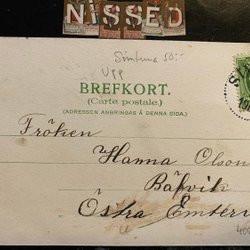 NISSED
Simtuna 50:-
Upp
BREFKORT.
(Carte postale.)
(ADRESSEN ANBRINGAS Å DENNA SIDA.)
Fröken
Hanna Olson
Bäfvik
Östra Emterv